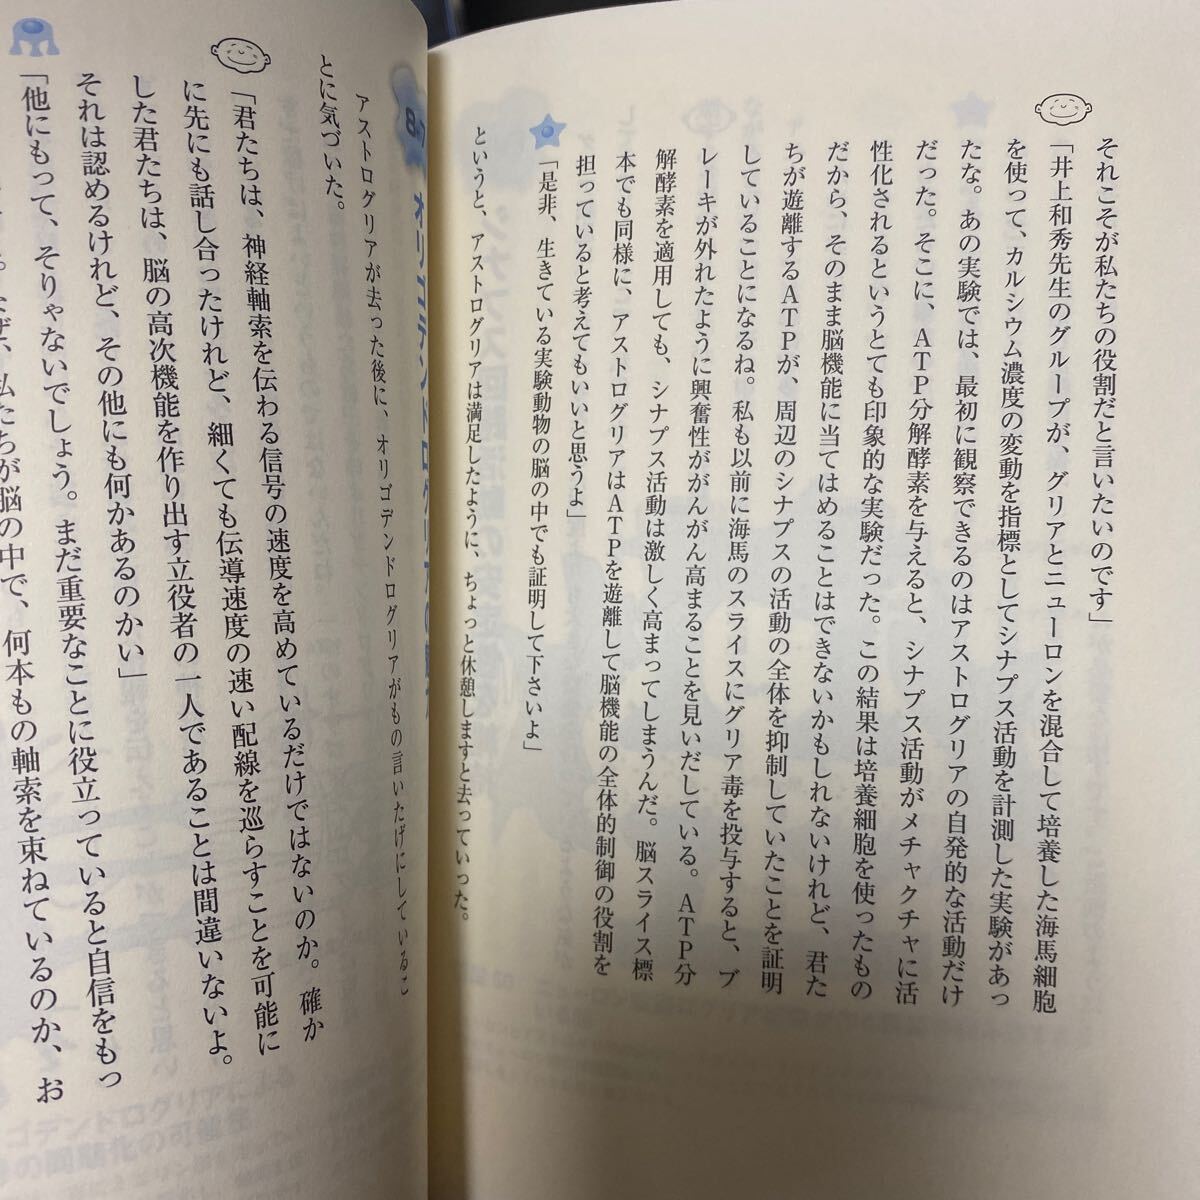 それこそが私たちの役割だと言いたいのです」
「井上和秀先生のグループが、グリアとニューロンを混合して培養した海馬細胞
を使って、カルシウム濃度の変動を指標としてシナプス活動を計測した実験があっ
たな。あの実験では、最初に観察できるのはアストログリアの自発的な活動だけ
だった。そこに、ATP分解酵素を与えると、シナプス活動がメチャクチャに活
性化されるというとても印象的な実験だった。この結果は培養細胞を使ったもの
だから、そのまま脳機能に当てはめることはできないかもしれないけれど、君た
ちが遊離するATPが、周辺のシナプスの活動の全体を抑制していたことを証明
していることになるね。私も以前に海馬のスライスにグリア毒を投与すると、ブ
レーキが外れたように興奮性ががんがん高まることを見いだしている。ATP分
解酵素を適用しても、シナプス活動は激しく高まってしまうんだ。脳スライス標
本でも同様に、アストログリアはATPを遊離して脳機能の全体的制御の役割を
担っていると考えてもいいと思うよ」
「是非、生きている実験動物の脳の中でも証明して下さいよ」
というと、アストログリアは満足したように、ちょっと休憩しますと去っていった。
8-7
オリゴデンドログリアの
アストログリアが去った後に、オリゴデンドログリアがもの言いたげにしているこ
とに気づいた。
「君たちは、神経軸索を伝わる信号の速度を高めているだけではないのか。確か
に先にも話し合ったけれど、細くても伝導速度の速い配線を巡らすことを可能に
した君たちは、脳の高次機能を作り出す立役者の一人であることは間違いないよ。
それは認めるけれど、その他にも何かあるのかい」
「他にもって、そりゃないでしょう。まだ重要なことに役立っていると自信をもっ
なぜ、私たちが脳の中で、何本もの軸索を束ねているのか、お